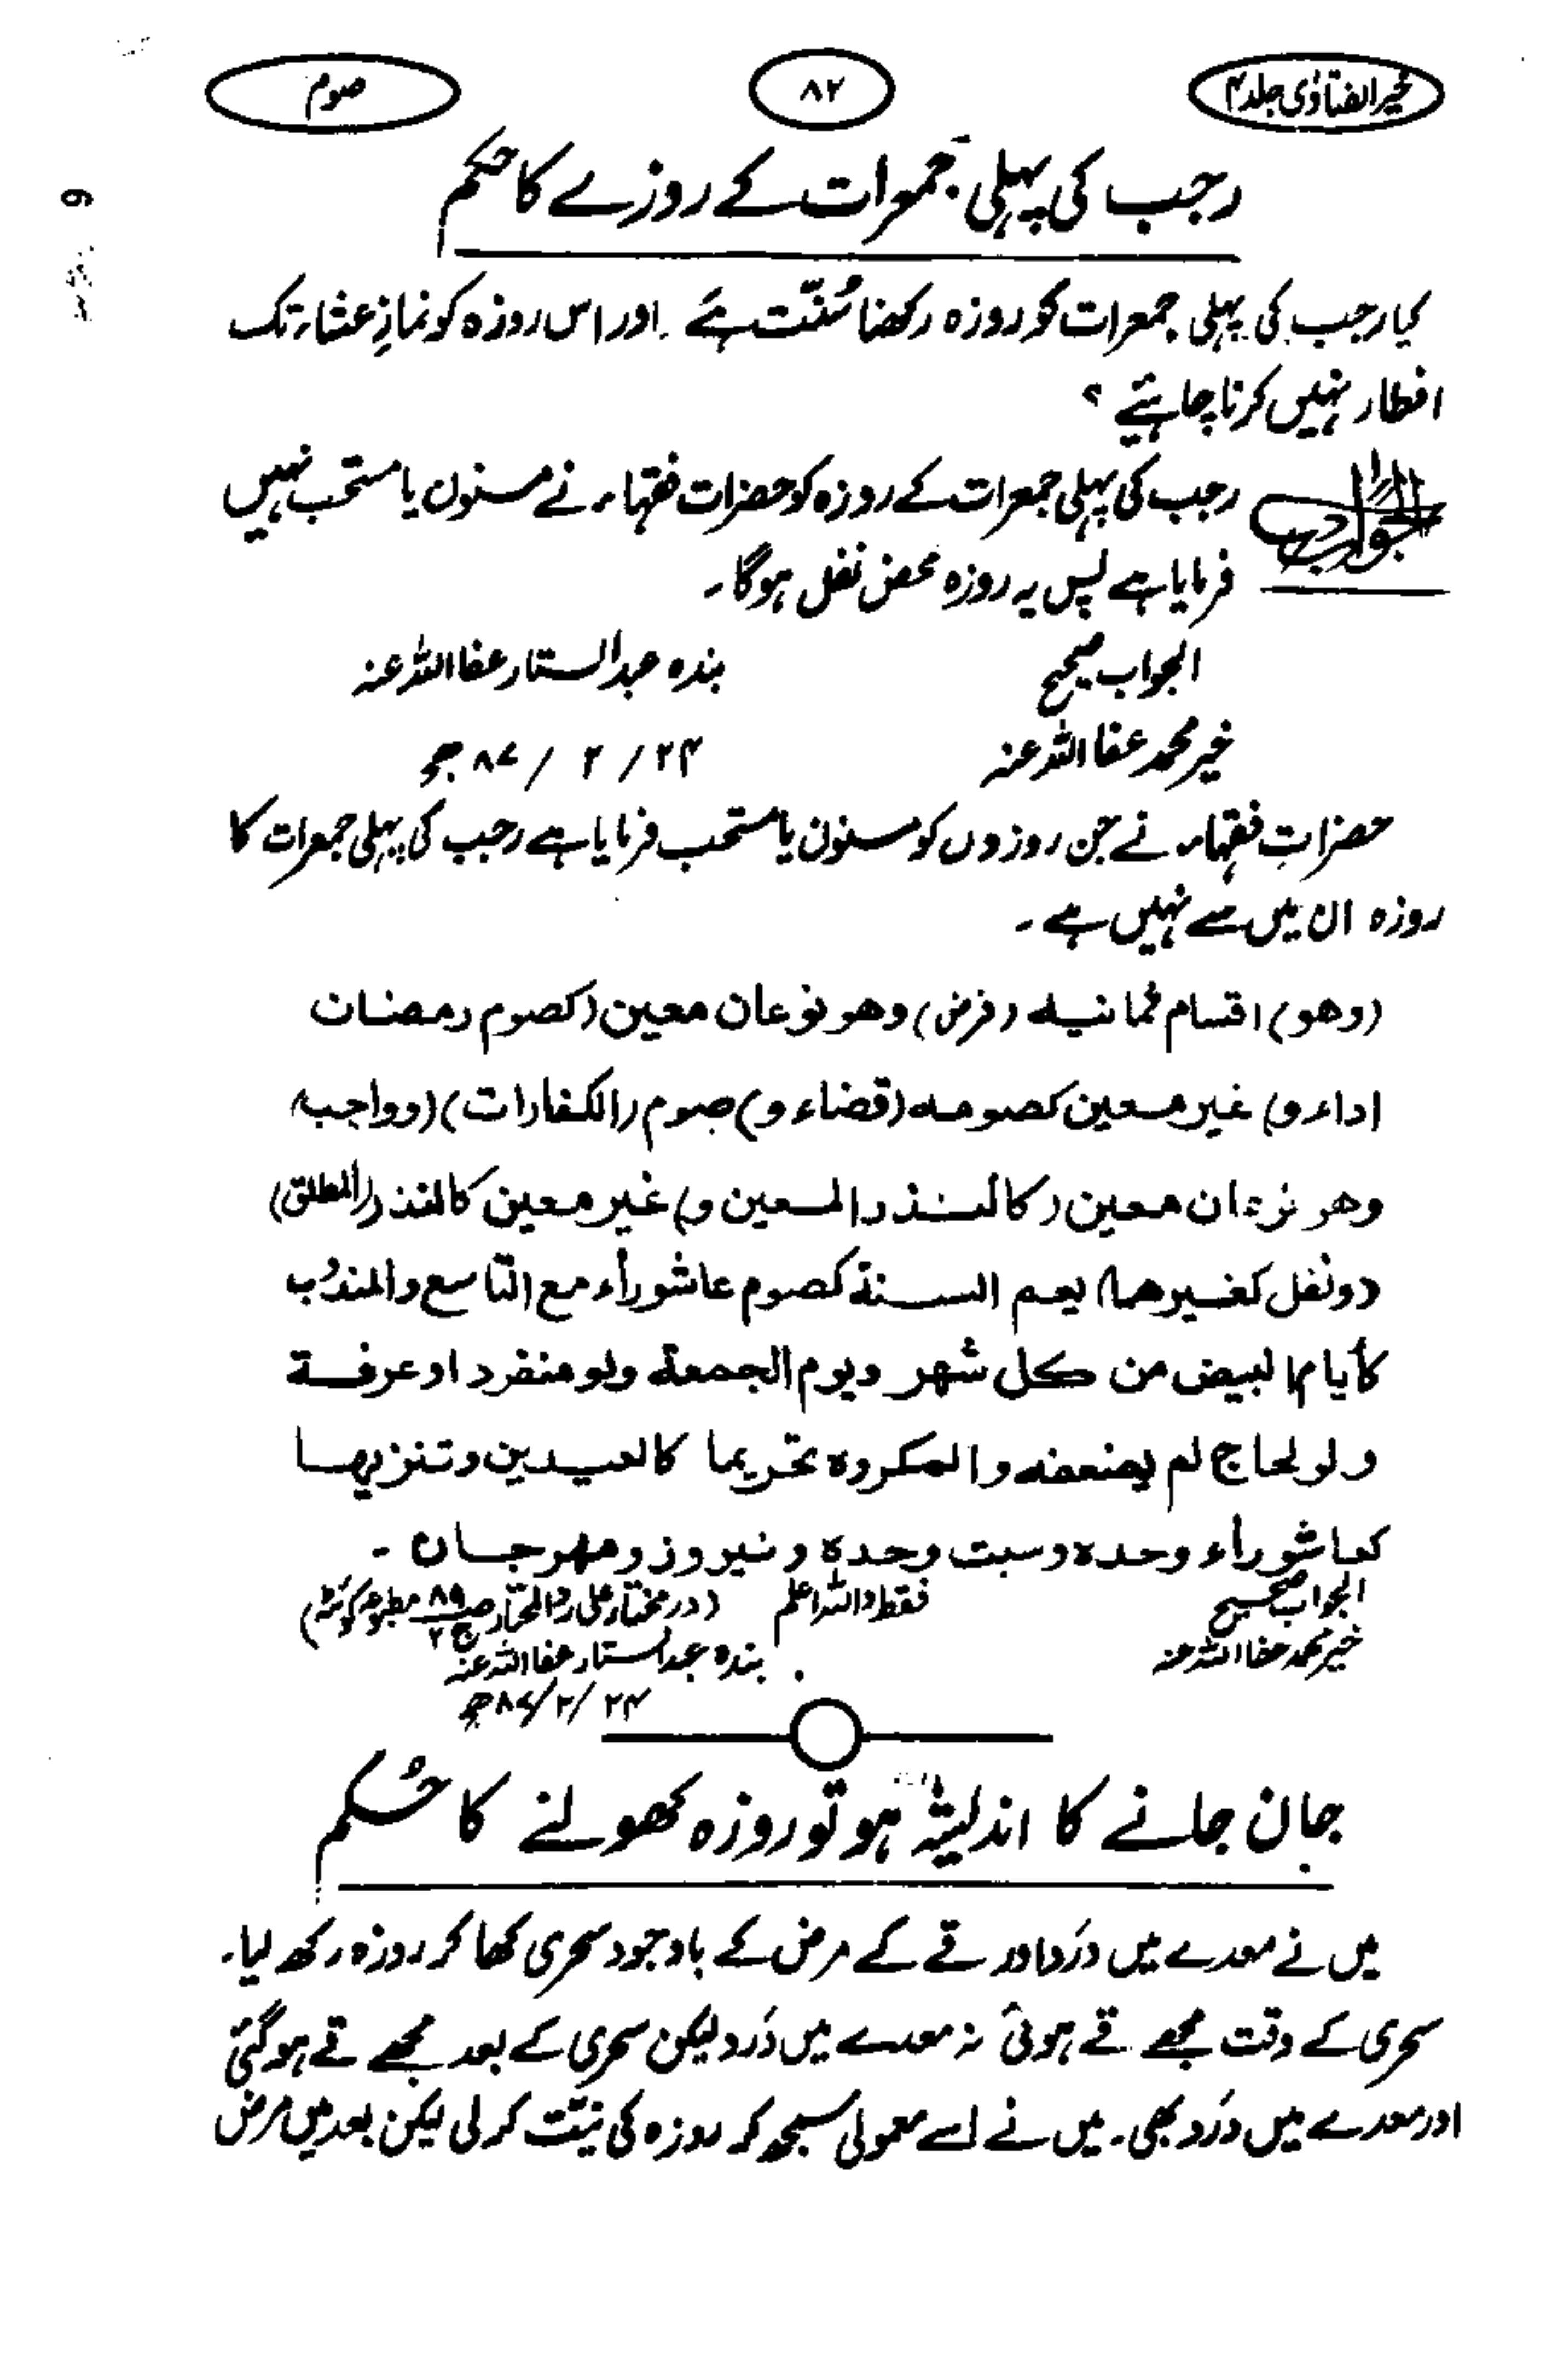 خیر الفتاوٰی جلد ۴
۸۲
صوم
رجب کی پہلی جمعرات کے روزے کا حکم
کیا رجب کی پہلی جمعرات کو روزہ رکھنا سُنّت ہے ۔ اور اس روزہ کو نمازِ عشاء تک
افطار نہیں کرنا چاہیئے ؟
الجواب رجب کی پہلی جمعرات کے روزہ کو حضرات فقہاء نے مسنون یا مستحب نہیں
فرمایا ہے پس یہ روزہ محض نفل ہوگا ۔
الجواب صحیح بندہ عبدالستار عفا اللہ عنہ
خیر محمد عفا اللہ عنہ ۲۴ / ۲ / ۸۷ ھج
حضراتِ فقہاء نے جن روزوں کو مسنون یا مستحب فرمایا ہے رجب کی پہلی جمعرات کا
روزہ ان میں سے نہیں ہے ۔
(وھو) اقسام ثمانیہ (فرض) وھو نوعان معین (کصوم رمضان
اداء و) غیر معین کصومہ (قضاء و) صوم (الکفارات) (وواجب)
وھو نوعان معین (کالنذر المعین و) غیر معین کالنذر (المطلق)
(ونفل کغیرھما) یعم السنة کصوم عاشوراء مع التاسع والمندوب
کأیام البیض من کل شھر ویوم الجمعة ولو منفرد او عرفة
ولو لحاج لم یضعفہ والمکروہ تحریما کالعیدین وتنزیھا
کعاشوراء وحدہ وسبت وحدہ ونیروز ومھرجان ۔
الجواب صحیح فقط واللہ اعلم (در مختار علی رد المحتار ص ۸۹ ج ۲ مطبوعہ کوئٹہ)
خیر محمد عفا اللہ عنہ بندہ عبدالستار عفا اللہ عنہ
۲۴ / ۲ / ۸۷ ھج
جان جانے کا اندیشہ ہو تو روزہ کھولنے کا حُکم
میں نے معدے میں دَرد اور قے کے مرض کے باوجود سحری کھا کر روزہ رکھ لیا ۔
سحری کے وقت مجھے قے ہوئی نہ معدے میں دَرد لیکن سحری کے بعد مجھے قے ہوگئی
اور معدے میں دَرد بھی ۔ میں نے اسے معمولی سمجھ کر روزہ کی نیّت کر لی لیکن بعد میں مرض